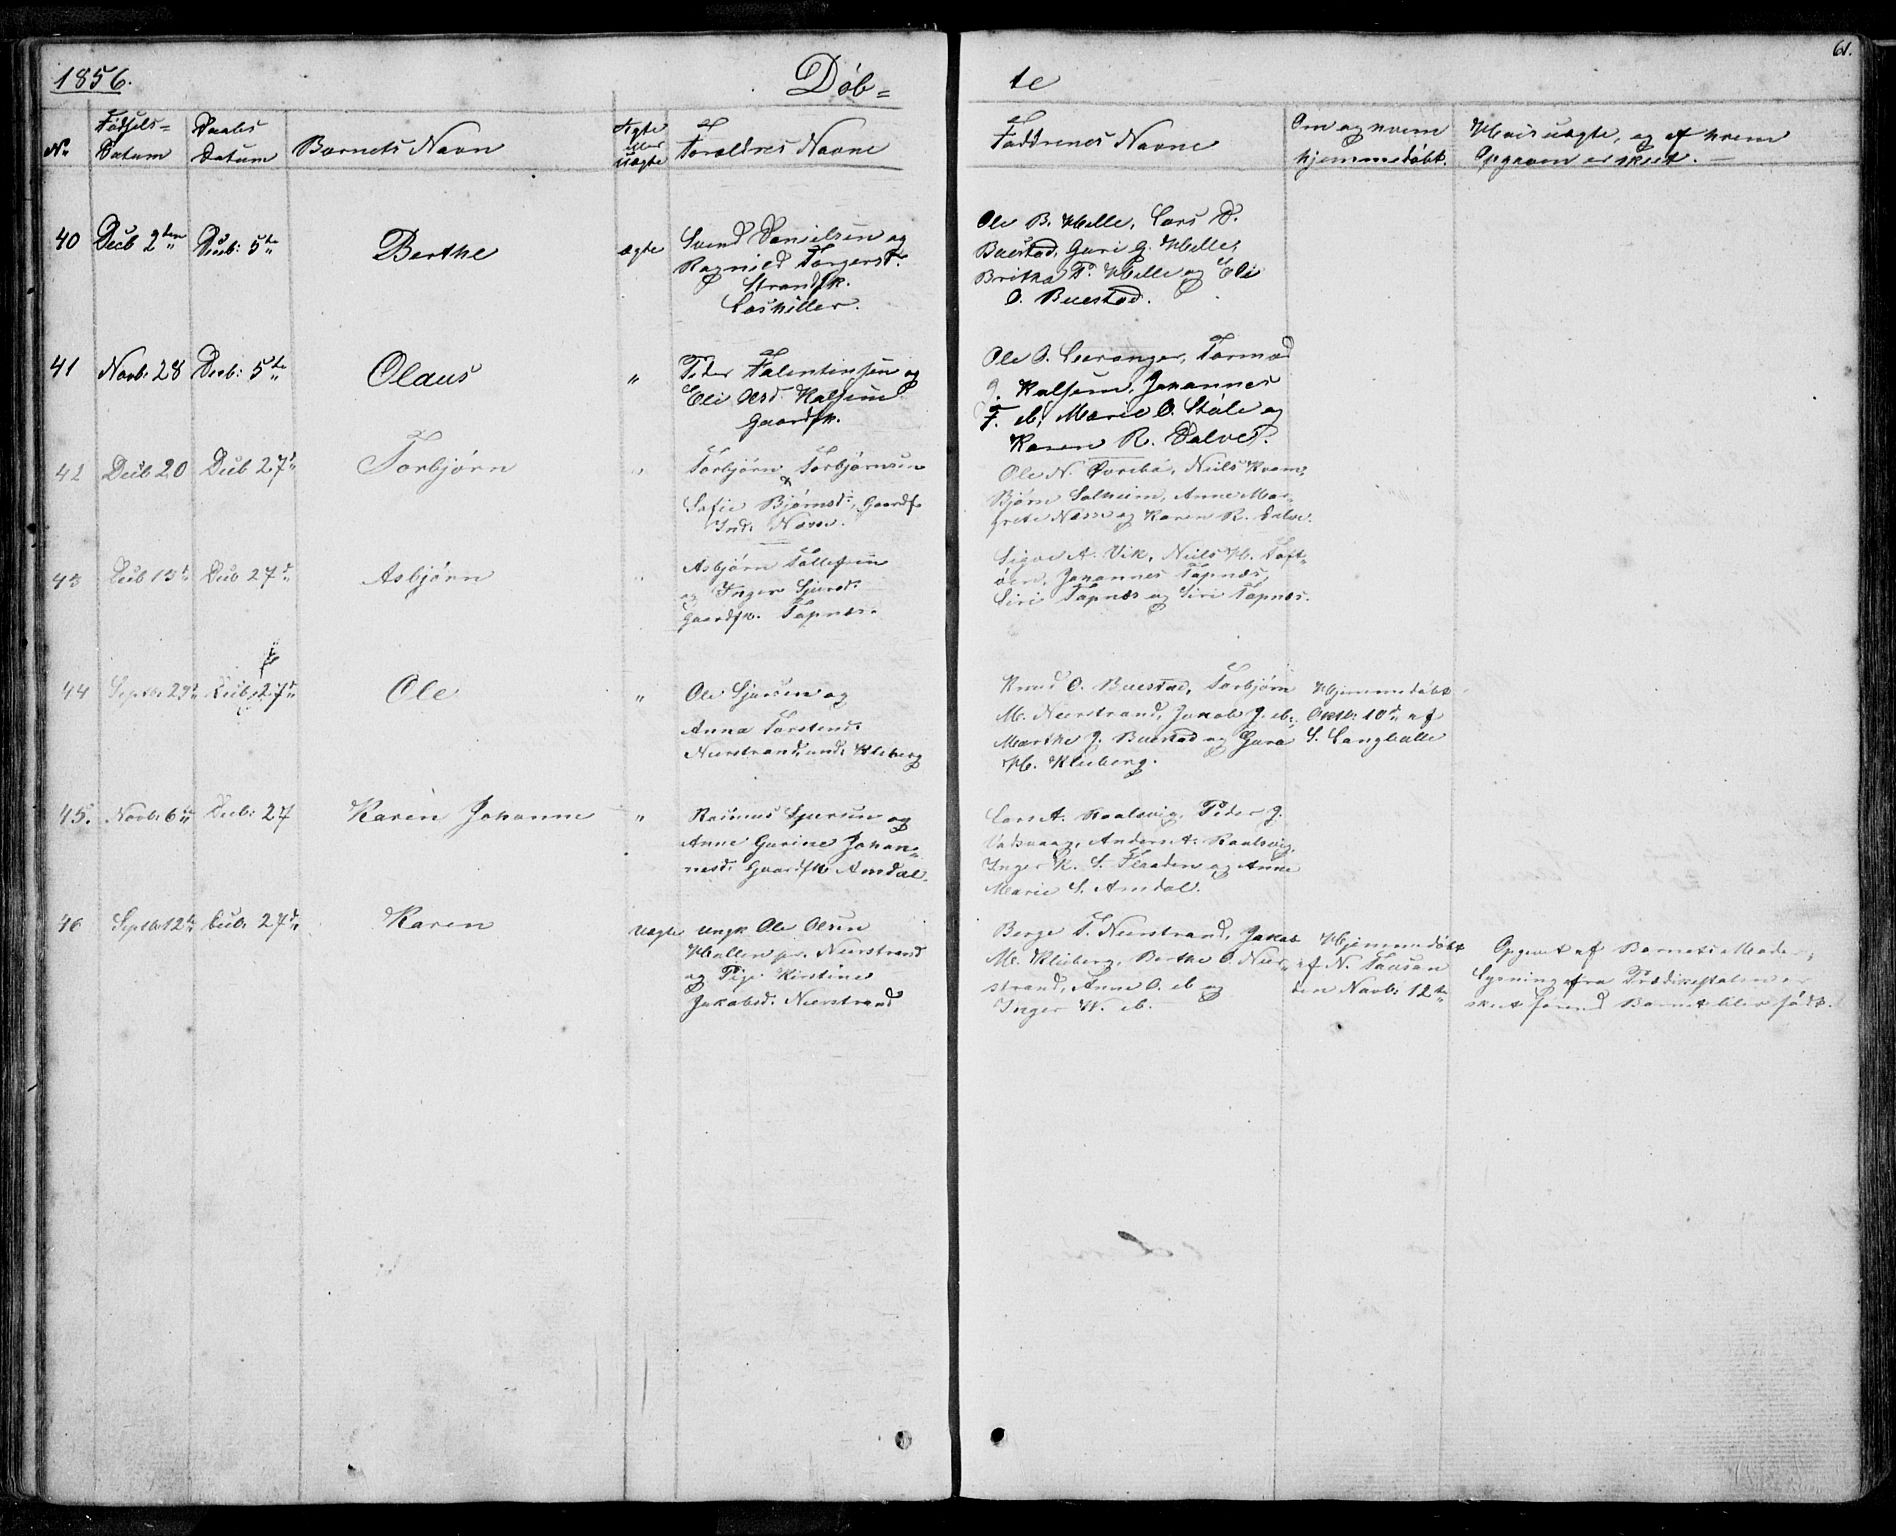 61.
1856. Døb= te
No Fødsels= Datum Daabs Datum Barnets Navn Ægte eller Uægte Forældres Navne
Faddrenes Navne Om og hvem hjemmedøbt. Hvis uægte, og af hvem Opgaven er skeet. —
40 Decb 2den Decb: 5te Berthe ægte Svend Danielsen og
Ragnild Torgersd.
Strandsk.
Loshiller.
Ole B. Helle, Lars D.
Buestad, Guri G. Helle,
Britha T. Helle og Eli
O. Buestad.
41 Novb: 28 Decb: 5te Olaus " Peder Falentinsen og
Eli Olsd Halsem
Gaardsk.
Ole O. Leeranger, Tormod
J. Halsem, Johannes
F. ib, Marie O. Støle og
Karen R. Dalve.
42 Decb 20 Decb 27d Torbjørn " Torbjørn Torbjørnsen
&
Sofie Bjørnsd: Gaardf
Ind: Næss.
Ole N. Øvrebø, Neils Kvam,
Bjørn Solheim, Anne Mar=
grete Næss og Karen R. Dalve.
43 Decb 15d Decb 27d Asbjørn " Asbjørn Tollefsen
og Inger Sjursd.
Gaardfk. Tapnæs.
Sigve A. Vik, Neils H. Toft=
øen, Johannes Tapnæs,
Siri Tapnæs og Siri Tapnæs.
44 Septb: 29d Decb: 27d Ole " Ole Sjursen og
Anna Torstensd.
Neerstrand, und. Kleberg
Knud O. Buestad, Torbjørn
M. Neerstrand, Jakob J. ib.,
Marthe J. Buestad og Guro
H. Kleberg.
Hjemmedøbt
Oktb: 10d af
S. Langballe
45. Novb: 6te Decb: 27 Karen Johanne " Rasmus Sjursen og
Anne Gurine Johan=
nesd. Gaardfk Amdal.
Lars A. Raalsvig, Peder J.
Vadsvaag, Anders A. Raalsvig,
Inger K. S. Flaaden og Anne
Marie S. Amdal.
46 Septb 12te Decb. 27d Karen Uægte Ungk Ole Olsen
Hallen pr. Neerstrand
og Pige Kirstine
Jakobsd. Neerstrand
Berge T. Neerstrand, Jakob
M. Kleberg, Berthe O. Neer=
strand, Anne O. ib og
Inger W. ib.
Hjemmedøbt
af N. Tausan
den Novb: 12te
Opgivet af Barnets Moder,
Lysning fra Prædikestolen er
skeet førend Barnet blev født.